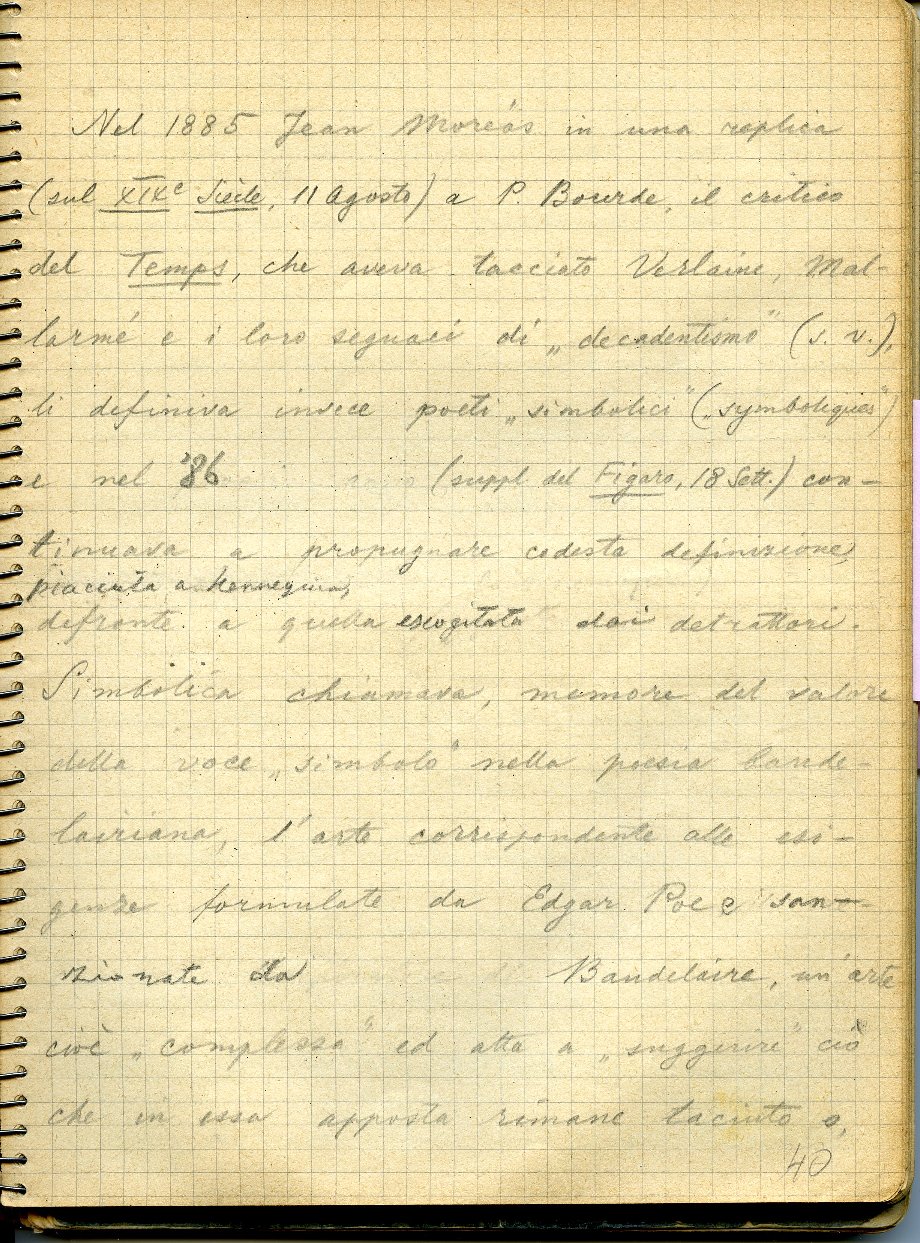 Nel 1885 Jean Moréas in una replica
(sul XIXe Siècle, 11 Agosto) a P. Bourde, il critico
del Temps, che aveva tacciato Verlaine, Mal-
larmé e i loro seguaci di „decadentismo" (s. v.),
li definiva invece poeti „simbolici" („symboliques")
e nel '86 (suppl. del Figaro, 18 Sett.) con-
tinuava a propugnare codesta definizione,
piaciuta a Hennequin,
defronte a quella escogitata dai detrattori.
Simbolica chiamava, memore del valore
della voce „simbolo" nella poesia baude-
lairiana, l'arte corrispondente alle esi-
genze formulate da Edgar Poe e san-
zionate da Baudelaire, un'arte
cioè „complessa" ed atta a „suggerire" ciò
che in essa apposta rimane taciuto o,
40